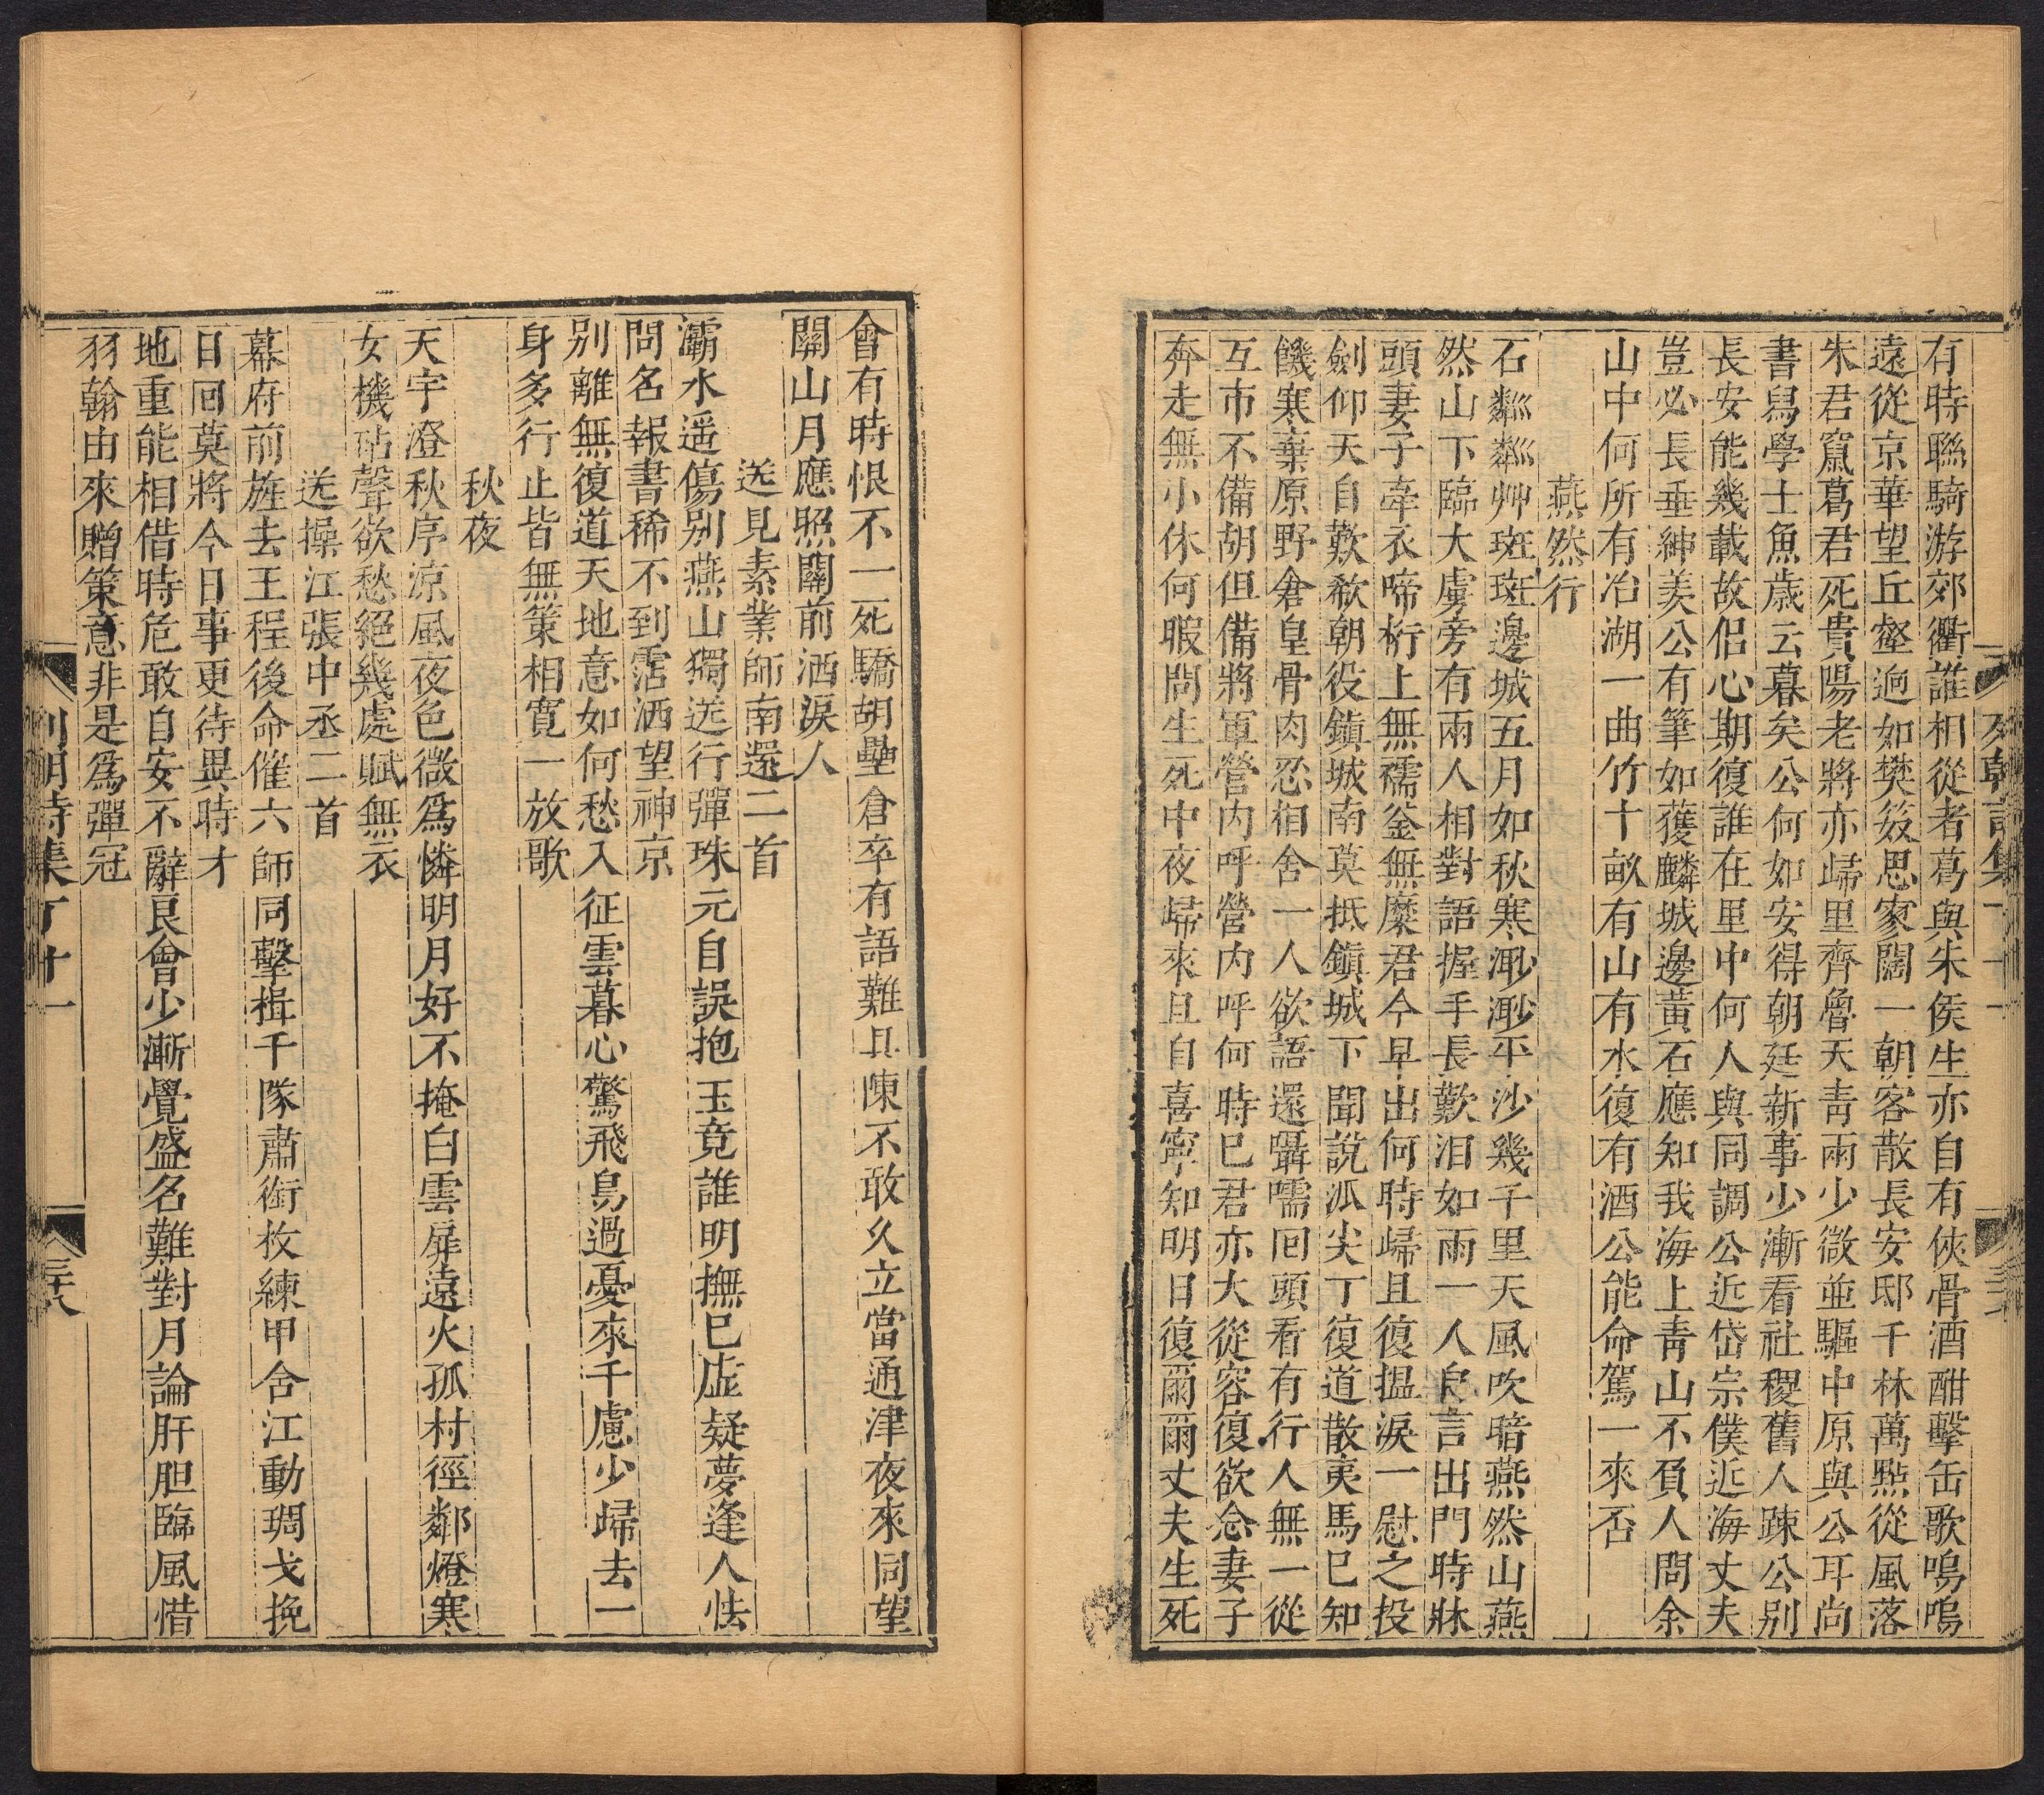 有時聯騎游郊衢誰相從者葛與朱侯生亦自有俠骨酒酣擊缶歌嗚嗚
遠從京華望丘壑逈如樊笯思家闊一朝客散長安邸千林萬點從風落
朱君竄葛君死貴陽老將亦歸里齊魯天青雨少微並驅中原與公耳尚
書舃學士魚歲云暮矣公何如安得朝廷新事少漸看社稷舊人踈公别
長安能幾載故侶心期復誰在里中何人與同調公近岱宗僕近海丈夫
豈必長垂紳羙公有筆如獲麟城邊黃石應知我海上青山不負人問余
山中何所有冶湖一曲竹十畝有山有水復有酒公能命駕一來否
燕然行
石粼粼艸斑斑邊城五月如秋寒渺渺平沙幾千里天風吹暗燕然山燕
然山下臨大虜旁有兩人相對語握手長歎泪如雨一人自言出門時牀
頭妻子牽衣啼桁上無襦釜無糜君今早出何時歸且復揾淚一慰之投
劍仰天自歎欷朝役鎮城南莫抵鎮城下聞說泒尖丁復道散夷馬巳知
饑寒棄原野倉皇骨肉忍相舍一人欲語還囁嚅囘頭看有行人無一從
互市不備胡但備將軍營内呼營内呼何時巳君亦大從容復欲念妻子
奔走無小休何暇問生死中夜歸來且自喜寧知明日復爾爾丈夫生死
會有時恨不一死驕胡壘倉卒有語難具陳不敢久立當通津夜來同望
關山月應照關前洒淚人
送見素業師南還二首
灞水遥傷别燕山獨送行彈珠元自誤抱玉竟誰明撫巳虛疑夢逢人怯
問名報書稀不到霑洒望神京
别離無復道天地意如何愁入征雲暮心驚飛鳥過憂來千慮少歸去一
身多行止皆無策相寬一放歌
秋夜
天宇澄秋序凉風夜色微爲憐明月好不掩白雲扉遠火孤村徑鄰燈寒
女機砧聲欲愁絕幾處賦無衣
送操江張中丞二首
幕府前旌去王程後命催六師同擊楫千隊肅銜枚練甲含江動琱戈挽
日囘莫將今日事更待異時才
地重能相借時危敢自安不辭良會少漸覺盛名難對月論肝胆臨風惜
羽翰由來贈策意非是爲彈冠
列朝詩集丁十一
列朝詩集丁十一
三十八